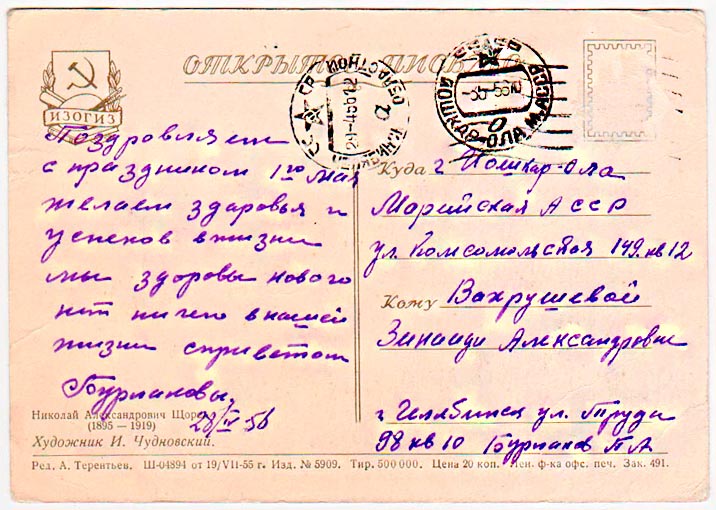 ИЗОГИЗ
ОТКРЫТОЕ ПИСЬМО
Поздровляем
с праздником 1го мая
желаем здаровья и
успехов в жизни
мы здоровы нового
нет ничего в нашей
жизни с приветом
Бурмановы.
28/IV 56
СССР
29-4 56 12
ЧЕЛЯБИНСК ОБЛАСТНОЙ
а
ЙОШКАР-ОЛА М.АССР
-35-5610
о
Куда г Йошкар-ола
Марийская АССР
ул. Комсомольская 149. кв 12
Кому Вахрушевой
Зинаиди Александровне
г Челябинск ул. Труда
98 кв 10 Бурманов П А
Николай Александрович Щорс
(1895 — 1919)
Художник И. Чудновский.
Ред. А. Терентьев. Ш-04894 от 19/VII-55 г. Изд. № 5909. Тир. 500 000. Цена 20 коп. Лен. ф-ка офс. печ. Зак. 491.